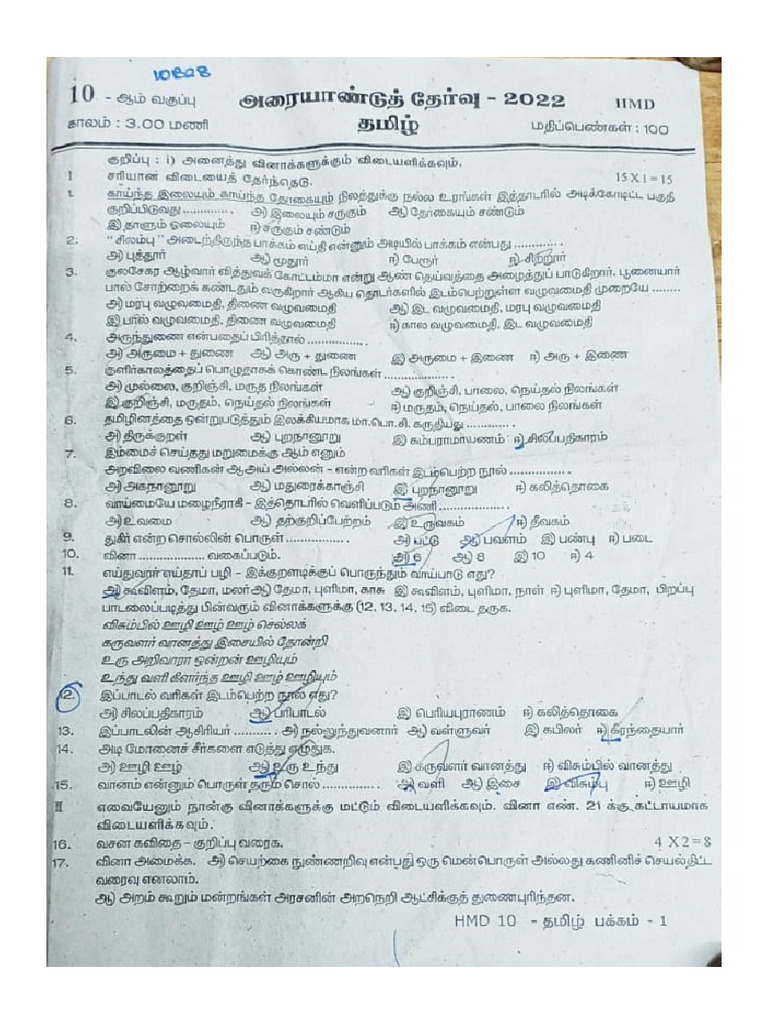 10828
10 - ஆம் வகுப்பு அரையாண்டுத் தேர்வு - 2022 HMD
காலம் : 3.00 மணி தமிழ் மதிப்பெண்கள் : 100
குறிப்பு : i) அனைத்து வினாக்களுக்கும் விடையளிக்கவும்.
I சரியான விடையைத் தேர்ந்தெடு. 15 X 1 = 15
1. காய்ந்த இலையும் காய்ந்த தோகையும் நிலத்துக்கு நல்ல உரங்கள் இத்தாடரில் அடிக்கோடிட்ட பகுதி
குறிப்பிடுவது .............. அ) இலையும் சருகும் ஆ) தோகையும் சண்டும்
இ) தாளும் ஓலையும் ஈ) சருகும் சண்டும்
2. "சிலம்பு" அடைந்திருந்த பாக்கம் எய்தி என்னும் அடியில் பாக்கம் என்பது .............
அ) புத்தூர் ஆ) மூதூர் இ) பேரூர் ஈ) சிற்றூர்
3. குலசேகர ஆழ்வார் வித்துவக் கோட்டம்மா என்று ஆண் தெய்வத்தை அழைத்துப் பாடுகிறார். பூனையார்
பால் சோற்றைக் கண்டதும் வருகிறார் ஆகிய தொடர்களில் இடம்பெற்றுள்ள வழுவமைதி முறையே ........
அ) மரபு வழுவமைதி, திணை வழுவமைதி ஆ) இட வழுவமைதி, மரபு வழுவமைதி
இ) பால் வழுவமைதி, திணை வழுவமைதி ஈ) கால வழுவமைதி, இட வழுவமைதி
4. அருந்துணை என்பதைப் பிரித்தால் .................
அ) அருமை + துணை ஆ) அரு + துணை இ) அருமை + இணை ஈ) அரு + இணை
5. குளிர்காலத்தைப் பொழுதாகக் கொண்ட நிலங்கள் ....................
அ) முல்லை, குறிஞ்சி, மருத நிலங்கள் ஆ) குறிஞ்சி, பாலை, நெய்தல் நிலங்கள்
இ) குறிஞ்சி, மருதம், நெய்தல் நிலங்கள் ஈ) மருதம், நெய்தல், பாலை நிலங்கள்
6. தமிழினத்தை ஒன்றுபடுத்தும் இலக்கியமாக மா.பொ.சி. கருதியது .............
அ) திருக்குறள் ஆ) புறநானூறு இ) கம்பராமாயணம் ஈ) சிலப்பதிகாரம்
7. இம்மைச் செய்தது மறுமைக்கு ஆம் எனும்
அறவிலை வணிகன் ஆஅய் அல்லன் - என்ற வரிகள் இடம்பெற்ற நூல் .................
அ) அகநானூறு ஆ) மதுரைக்காஞ்சி இ) புறநானூறு ஈ) கலித்தொகை
8. வாய்மையே மழைநீராகி - இத்தொடரில் வெளிப்படும் அணி ...................
அ) உவமை ஆ) தற்குறிப்பேற்றம் இ) உருவகம் ஈ) தீவகம்
9. துகிர் என்ற சொல்லின் பொருள் ................. அ) பட்டு ஆ) பவளம் இ) பண்பு ஈ) படை
10. வினா .................. வகைப்படும். அ) 6 ஆ) 8 இ) 10 ஈ) 4
11. எய்துவர் எய்தாப் பழி - இக்குறளடிக்குப் பொருந்தும் வாய்பாடு எது?
அ) கூவிளம், தேமா, மலர் ஆ) தேமா, புளிமா, காசு இ) கூவிளம், புளிமா, நாள் ஈ) புளிமா, தேமா, பிறப்பு
பாடலைப்படித்து பின்வரும் வினாக்களுக்கு (12, 13, 14, 15) விடை தருக.
விசும்பில் ஊழி ஊழ் ஊழ் செல்லக்
கருவளர் வானத்து இசையில் தோன்றி
உரு அறிவாரா ஒன்றன் ஊழியும்
உந்து வளி கிளர்ந்த ஊழி ஊழ் ஊழியும்
12. இப்பாடல் வரிகள் இடம்பெற்ற நூல் எது?
அ) சிலப்பதிகாரம் ஆ) பரிபாடல் இ) பெரியபுராணம் ஈ) கலித்தொகை
13. இப்பாடலின் ஆசிரியர் ............ அ) நல்லுந்துவனார் ஆ) வள்ளுவர் இ) கபிலர் ஈ) கீரந்தையார்
14. அடி மோனைச் சீர்களை எடுத்து எழுதுக.
அ) ஊழி ஊழ் ஆ) உரு உந்து இ) கருவளர் வானத்து ஈ) விசும்பில் வானத்து
15. வானம் என்னும் பொருள் தரும் சொல் ................ அ) வளி ஆ) இசை இ) விசும்பு ஈ) ஊழி
II எவையேனும் நான்கு வினாக்களுக்கு மட்டும் விடையளிக்கவும். வினா எண். 21 க்கு கட்டாயமாக
விடையளிக்கவும்.
16. வசன கவிதை - குறிப்பு வரைக. 4 X 2 = 8
17. வினா அமைக்க. அ) செயற்கை நுண்ணறிவு என்பது ஒரு மென்பொருள் அல்லது கணினிச் செயல்திட்ட
வரைவு எனலாம்.
ஆ) அறம் கூறும் மன்றங்கள் அரசனின் அறநெறி ஆட்சிக்குத் துணைபுரிந்தன.
HMD 10 - தமிழ் பக்கம் - 1